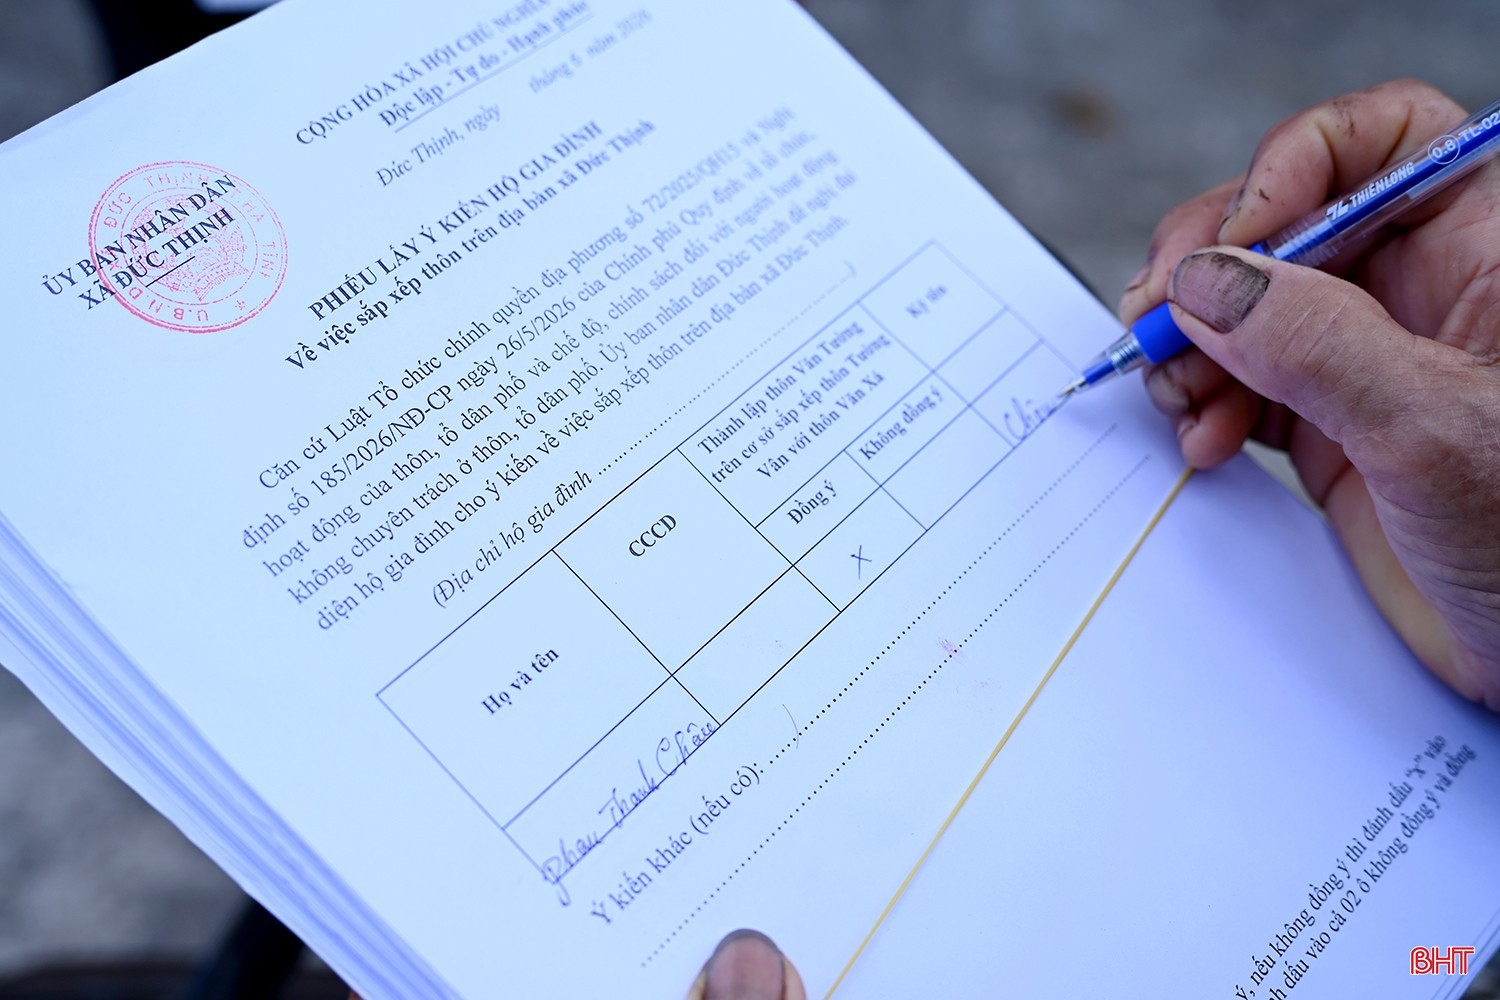 ỦY BAN NHÂN DÂN
XÃ ĐỨC THỊNH
CỘNG HÒA XÃ HỘI CHỦ NGHĨA
Độc lập - Tự do - Hạnh phúc
Đức Thịnh, ngày tháng 6 năm 2026
PHIẾU LẤY Ý KIẾN HỘ GIA ĐÌNH
Về việc sắp xếp thôn trên địa bàn xã Đức Thịnh
Căn cứ Luật Tổ chức chính quyền địa phương số 72/2025/QH15 và Nghị
định số 185/2026/NĐ-CP ngày 26/5/2026 của Chính phủ Quy định về tổ chức,
hoạt động của thôn, tổ dân phố và chế độ, chính sách đối với người hoạt động
không chuyên trách ở thôn, tổ dân phố. Ủy ban nhân dân Đức Thịnh đề nghị đại
diện hộ gia đình cho ý kiến về việc sắp xếp thôn trên địa bàn xã Đức Thịnh.
(Địa chỉ hộ gia đình ........................................)
Họ và tên
CCCD
Thành lập thôn Văn Tường
trên cơ sở sắp xếp thôn Tường
Vân với thôn Văn Xá
Ký tên
Đồng ý
Không đồng ý
Phan Thanh Châu
X
Châu
Ý kiến khác (nếu có):
ý, nếu không đồng ý thì đánh dấu "x" vào
h dấu vào cả 02 ô không đồng ý và đồng
THIÊN LONG
0.8
TL-02
BHT